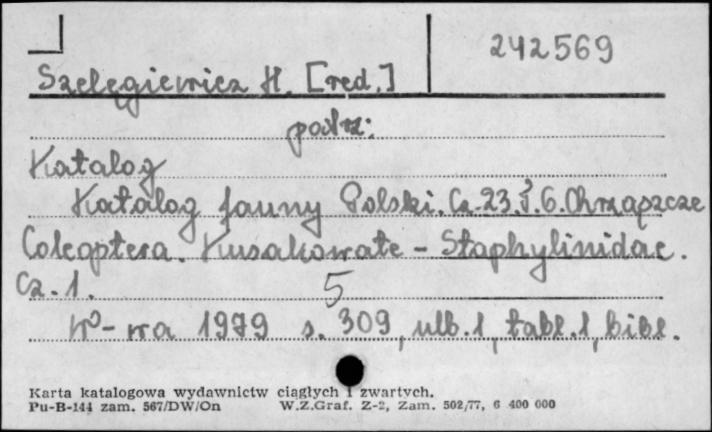 242569
Szelęgiewicz H. [red.]
patrz:
Katalog
Katalog fauny Polski. Cz. 23. T. 6. Chrząszcze
Coleoptera. Kusakowate - Staphylinidae.
Cz. 1. 5
W-wa 1979 s. 309, nlb. 1, tabl. 1, bibl.
Karta katalogowa wydawnictw ciągłych i zwartych.
Pu-B-144 zam. 567/DW/On W.Z.Graf. Z-2, Zam. 502/77, 6 400 000